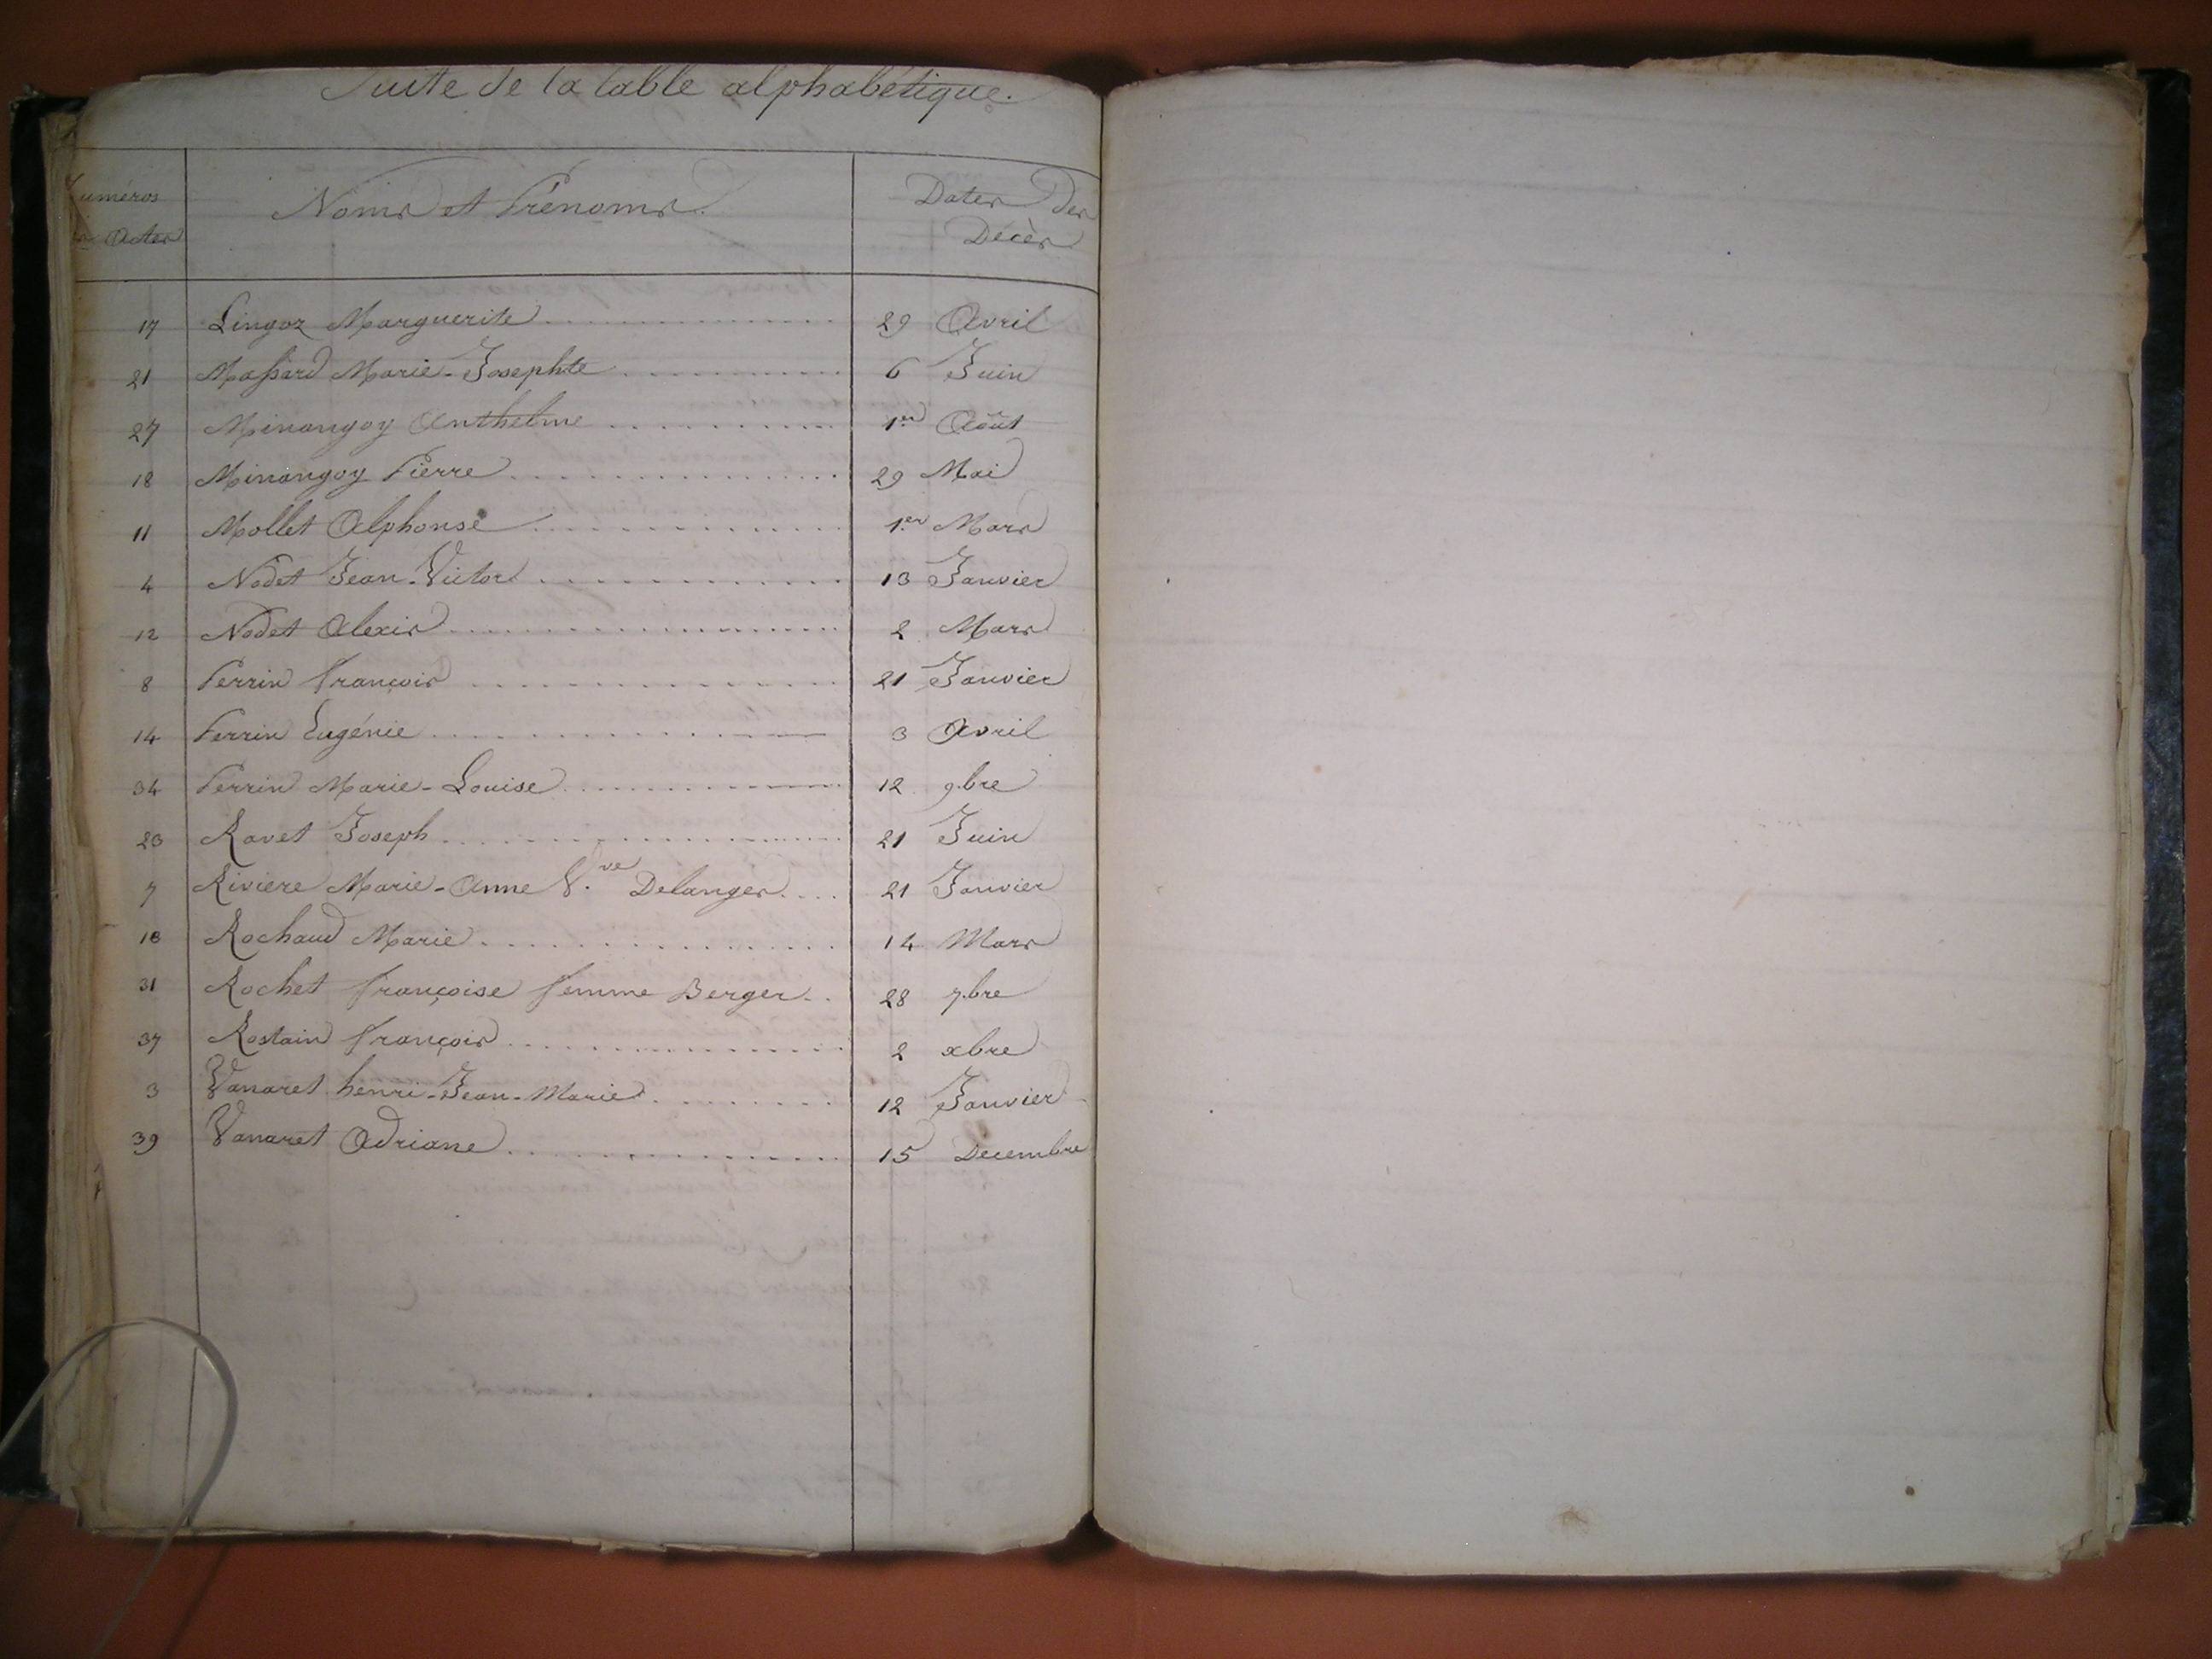 Suite de la table alphabétique.
Numéros des Actes Noms et Prénoms. Dates des Décès
17 Lingoz Marguerite 29 Avril
21 Massard Marie-Josephte 6 Juin
27 Minangoy Anthelme 1er Août
18 Minangoy Pierre 29 Mai
11 Mollet Alphonse 1er Mars
4 Nodet Jean-Victor 13 Janvier
12 Nodet Alexis 2 Mars
8 Perrin François 21 Janvier
14 Perrin Eugénie 3 Avril
34 Perrin Marie-Louise 12 9bre
23 Ravet Joseph 21 Juin
7 Riviere Marie-Anne Vve Delanges 21 Janvier
13 Rochaud Marie 14 Mars
31 Rochet françoise femme Berger 28 7bre
37 Rostain françois 2 xbre
3 Vanaret henri-Jean-Marie 12 Janvier
39 Vanaret Adriane 15 Decembre